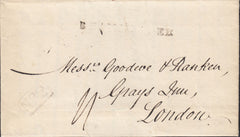 Messrs. Goodeve & Ranken,
Grays Inn,
London.